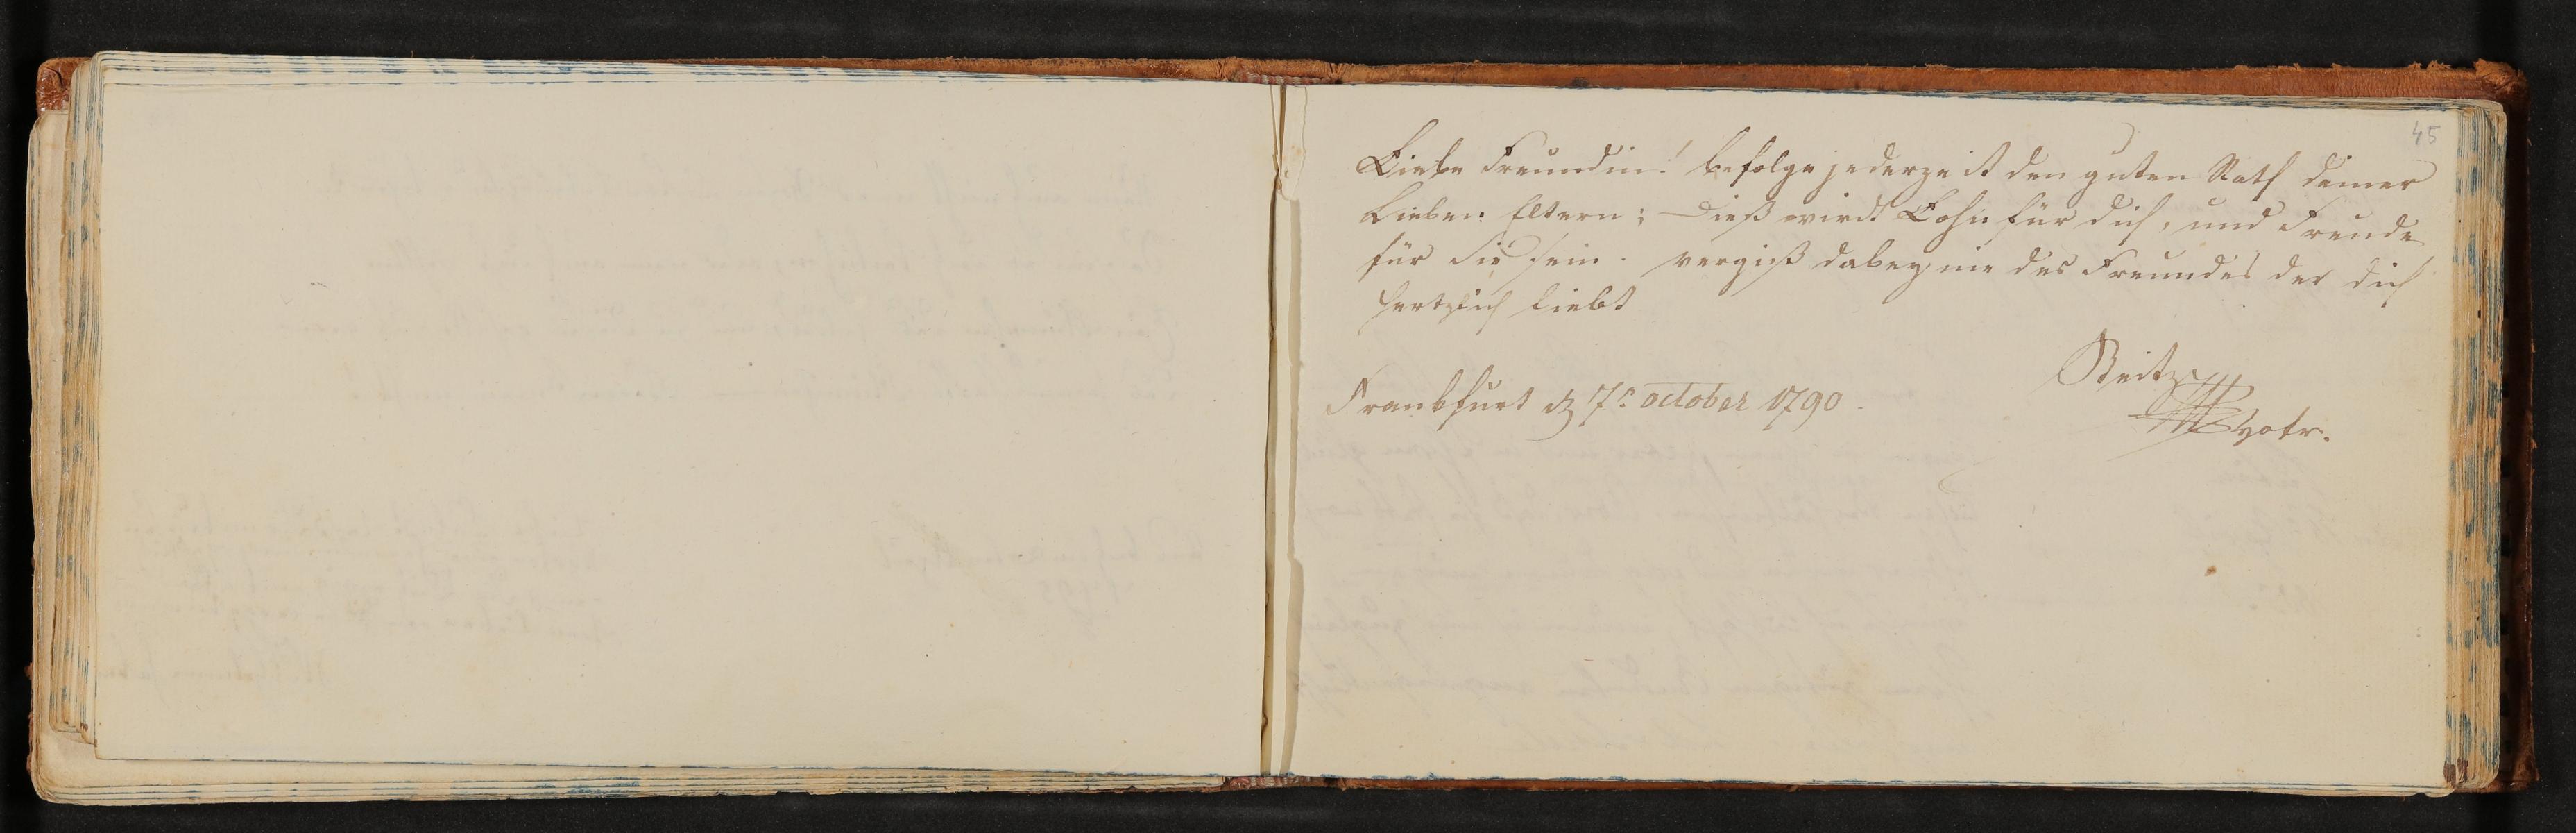 45
Liebe Freundin! befolge jederzeit den guten Rath deiner
Lieben Eltern; Dieß wird Lohn für dich, und Freude
für Sie sein. vergiß dabey nie des Freundes der dich
hertzlich liebt
Frankfurt d 7r. october 1790.